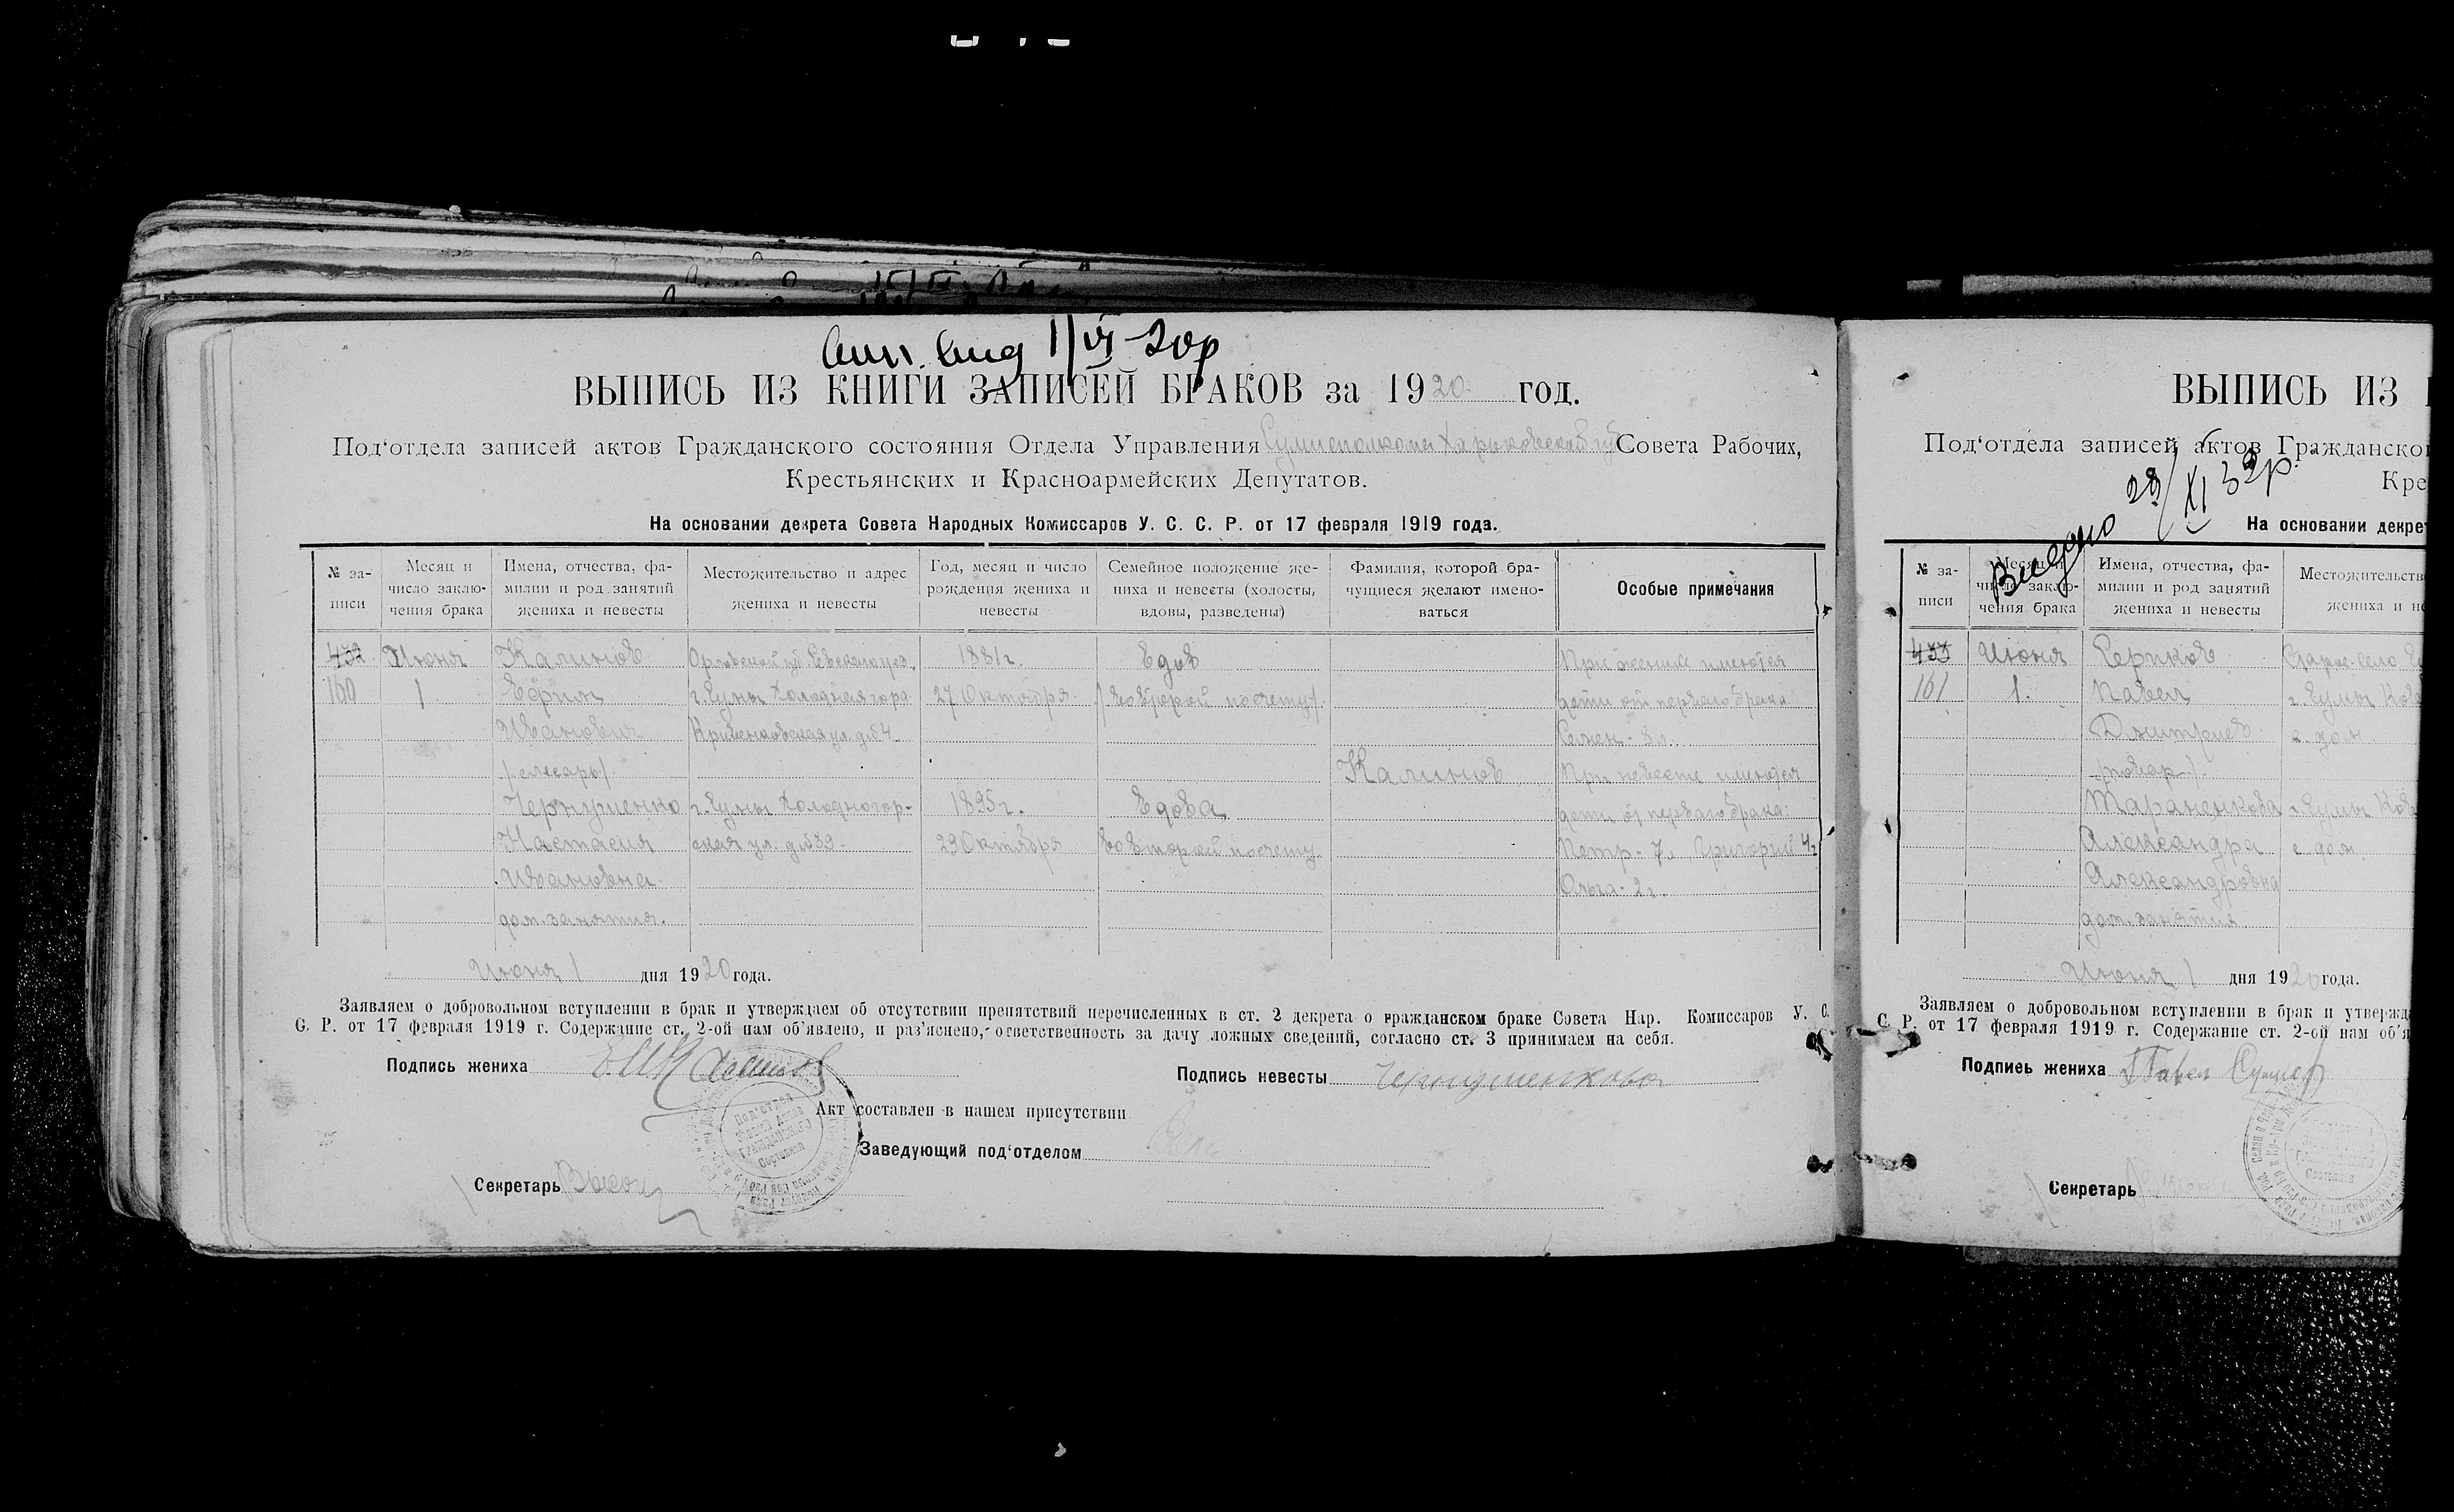 1/VI-20р
ВЫПИСЬ ИЗ КНИГИ ЗАПИСЕЙ БРАКОВ за 1920 год.
Под‘отдела записей актов Гражданского состояния Отдела Управления Сумисполкома Харьковской губ Совета Рабочих,
Крестьянских и Красноармейских Депутатов.
На основании декрета Совета Народных Комиссаров У. С. С. Р. от 17 февраля 1919 года.
№ за-
писи
Месяц и
число заклю-
чения брака
Имена, отчества, фа-
милии и род занятий
жениха и невесты
Местожительство и адрес
жениха и невесты
Год, месяц и число
рождения жениха и
невесты
Семейное положение же-
ниха и невесты (холосты,
вдовы, разведены)
Фамилия, которой бра-
чущиеся желают имено-
ваться
Особые примечания
432
160
Июня
1
Калинов
Ефрим
Иванович
/слесарь/
Орловской губ. Севского уез.
г. Сумы Холодная гора
ул. д. № 4
1881 г.
27 Октября
Вдов
/во второй по счету/
При женихе имеются
дети от первого брака
Семен - 8 л.
Калинов
При невесте имеются
дети от первого брака:
Петр - 7 л., Григорий 4 г
Ольга - 2 г.
Чернушенко
Настасия
Ивановна
дом. занятия.
г. Сумы Холодногор-
ская ул. д. № 39
1895 г.
29 Октября
Вдова
во второй по счету
Июня 1 дня 1920 года.
Заявляем о добровольном вступлении в брак и утверждаем об отсутствии препятствий перечисленных в ст. 2 декрета о гражданском браке Совета Нар. Комиссаров У. С.
С. Р. от 17 февраля 1919 г. Содержание ст. 2-ой нам об‘явлено, и раз‘яснено, ответственность за дачу ложных сведений, согласно ст. 3 принимаем на себя.
Подпись жениха Е.И.Калинов
Подпись невесты Чернушенкова
Акт составлен в нашем присутствии
Заведующий под‘отделом
Секретарь
Под‘отдел
Записей Актов
Гражданского
Состояния
ВЫПИСЬ ИЗ
Под‘отдела записей актов Гражданско
Кре
Видано 28/XI 32р.
На основании декрет
№ за-
писи
Месяц и
число заклю-
чения брака
Имена, отчества, фа-
милии и род занятий
жениха и невесты
Местожительств
жениха и не
433
161
Июня
1.
Павел
Дмитриев
с. дом
Тараненкова
Александра
Александровна
дом. занятия
г. Сумы
с. дом.
Июня 1 дня 1920 года.
Заявляем о добровольном вступлении в брак и утвержд
С. Р. от 17 февраля 1919 г. Содержание ст. 2-ой нам об‘я
Подпись жениха Павел
Секретарь
Гражданского
Состояния